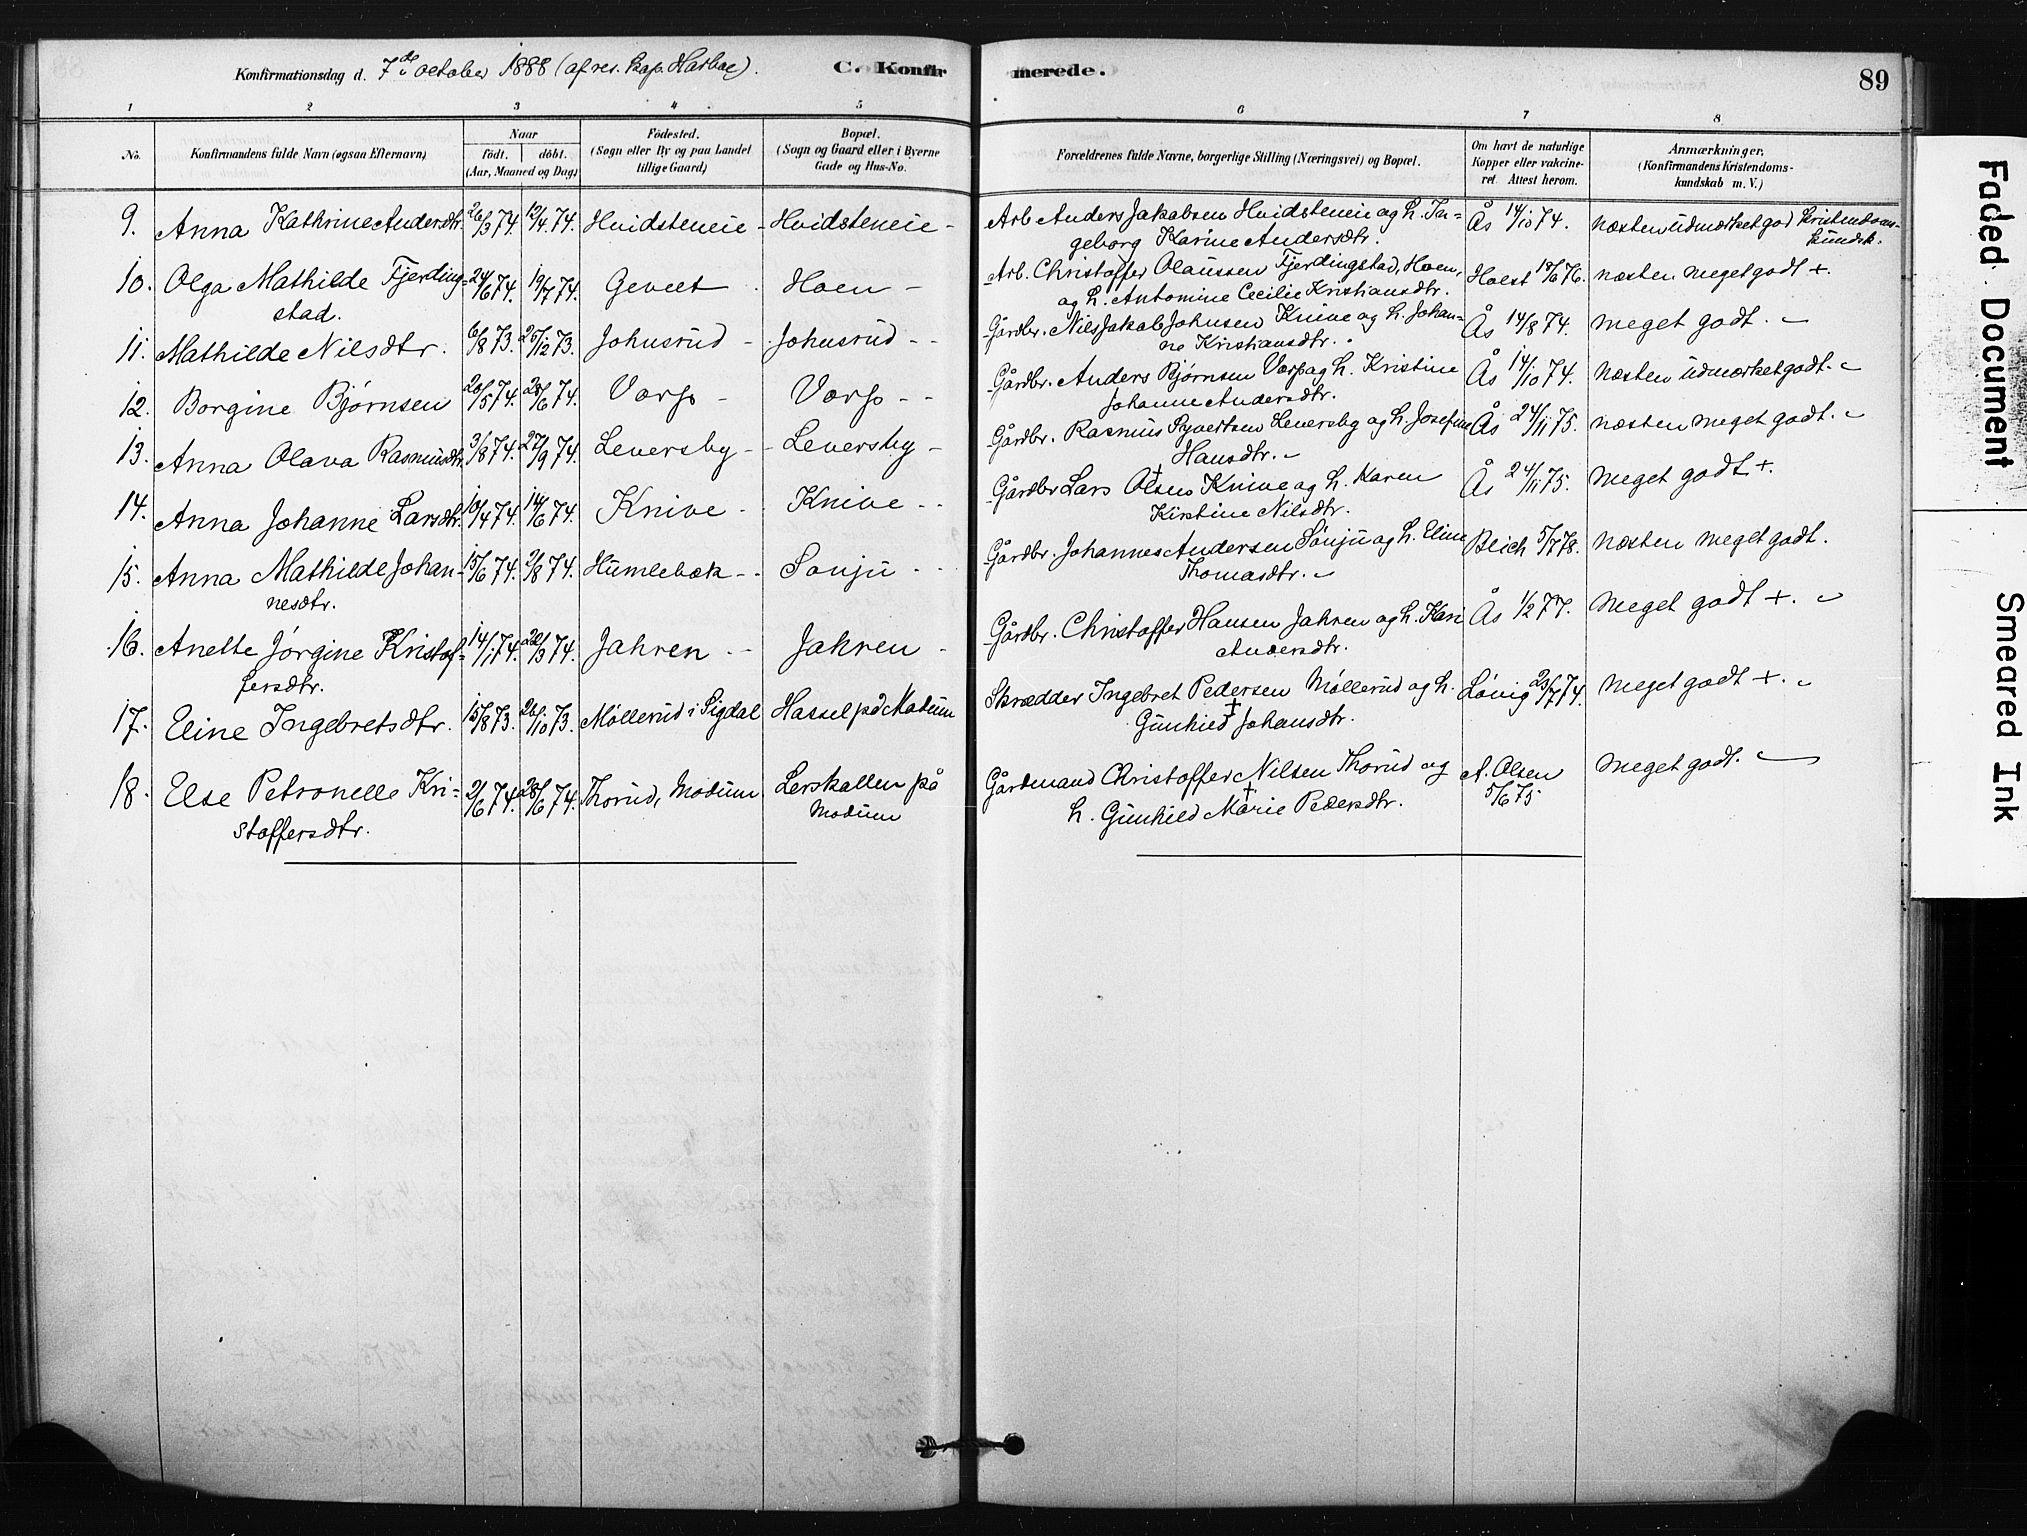 Konfirmationsdag d. 7de october 1888 (af res. kap. Harboe). C. Konfir merede. 89
1 2 3 4 5 6 7 8
No. Konfirmandens fulde Navn (ogsaa Efternavn) Naar födt. döbt. (Aar, Maaned og Dag) Födested. (Sogn eller By og paa Landet tillige Gaard) Bopæl. (Sogn og Gaard eller i Byerne Gade og Hus-No. Forældrenes fulde Navne, borgerlige Stilling (Næringsvei) og Bopæl. Om havt de naturlige Kopper eller vakcineret. Attest herom. Anmærkninger. (Konfirmandens Kristendomskundskab m. V.)
9. Anna Kathrine Andersdtr. 26/3 74. 12/4 74. Hvidsteneie - Hvidsteneie - Arb Anders Jakobsen Hvidsteneie og h. In= Ås 14/10 74. næsten udmærket god kristendoms-
geborg Karine Andersdtr. kundsk.
10. Olga Mathilde Fjerding= 24/6 74. 19/7 74. Geveet Hoen - Arb. Christoffer Olaussen Fjerdingstad, Hoen, Holst 19/6 76. næsten meget godt +.
stad. og h. Antomine Cecilie Kristiansdtr.
11. Mathilde Nilsdtr. 6/8 73. 26/12 73. Johnsrud - Johnsrud - - Gårdbr. Nils Jakob Johnsen Knive og h. Johan= Ås 14/8 74. meget godt. -
ne Kristiansdtr.
12. Borgine Bjørnsen 20/5 74. 28/6 74. Vorp - Vorp - - Gårdbr. Anders Bjørnsen Vorp og h. Kristine Ås 14/10 74. næsten udmærket godt. -
Johanne Andersdtr.
13. Anna Olava Rasmusdtr. 3/8 74. 27/9 74. Leversby - Leversby - Gårdbr. Rasmus Syvertsen Leversby og h. Josefine Ås 24/11 75. næsten meget godt. -
Hansdtr. -
14. Anna Johanne Larsdtr. 10/4 74. 14/6 74. Knive - Knive - - Gårdbr Lars Olsen Knive og h. Karen Ås 24/11 75. meget godt +.
Kirstine Nilsdtr.
15. Anna Mathilde Johan- 15/6 74. 2/8 74. Humlebæk - - Sønju - - Gårdbr. Johannes Andersen Sønju og h. Eline Blich 5/7 78. næsten meget godt.
nesdtr. Thomasdtr. -
16. Anette Jørgine Kristof= 14/1 74. 22/3 74. Jahren - - Jahren - Gårdbr. Christoffer Hansen Jahren og h. Kari Ås 1/2 77. meget godt +. -
fersdtr. Andersdtr.
17. Eline Ingebretsdtr. 15/8 73. 26/10 73. Møllerud i Sigdal Hassel på Modum Skrædder Ingebret Pedersen Møllerud og h. Løvig 23/7 74. meget godt +. -
Gunhild Johansdtr.
18. Else Petronelle Kri= 2/6 74. 28/6 74. Thorud, Modum Lerskallen på Gårdmand Christoffer Nilsen Thorud og A. Olsen meget godt. -
stoffersdtr. Modum h. Gunhild Marie Pedersdtr. 5/6 75
Faded Document
Smeared Ink